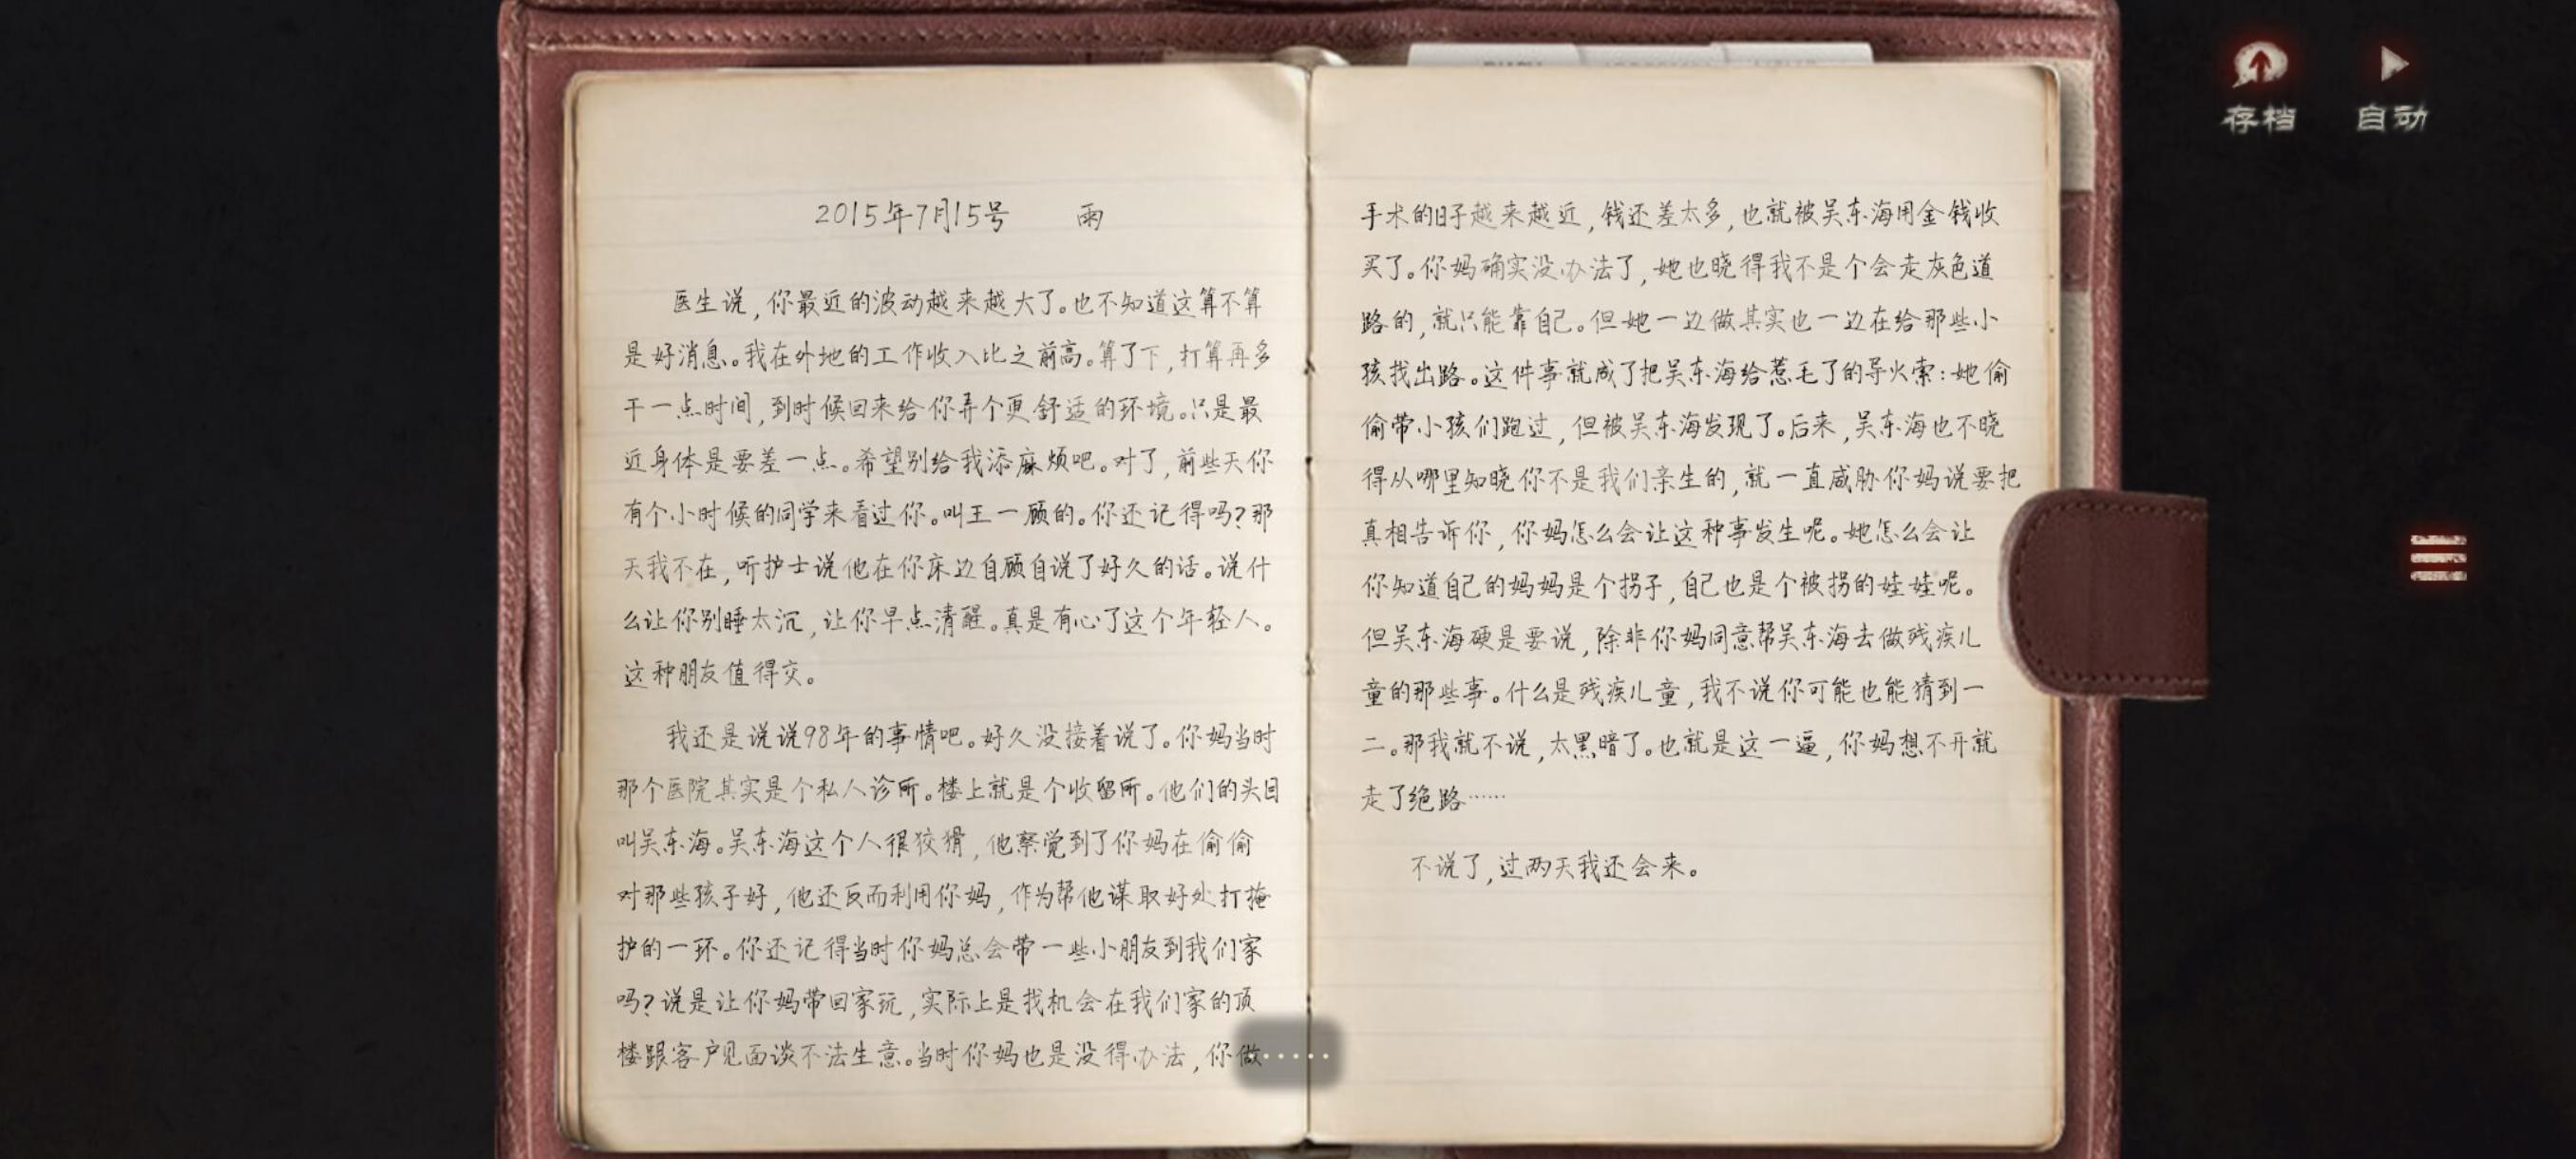 存档
自动
2015年7月15号 雨
医生说,你最近的波动越来越大了。也不知道这算不算
是好消息。我在外地的工作收入比之前高。算了下,打算再多
干一点时间,到时候回来给你弄个更舒适的环境。只是最
近身体是要差一点。希望别给我添麻烦吧。对了,前些天你
有个小时候的同学来看过你。叫王一顾的。你还记得吗?那
天我不在,听护士说他在你床边自顾自说了好久的话。说什
么让你别睡太沉,让你早点清醒。真是有心了这个年轻人。
这种朋友值得交。
我还是说说98年的事情吧。好久没接着说了。你妈当时
那个医院其实是个私人诊所。楼上就是个收留所。他们的头目
叫吴东海。吴东海这个人很狡猾,他察觉到了你妈在偷偷
对那些孩子好,他还反而利用你妈,作为帮他谋取好处打掩
护的一环。你还记得当时你妈总会带一些小朋友到我们家
吗?说是让你妈带回家玩,实际上是找机会在我们家的顶
楼跟客户见面谈不法生意。当时你妈也是没得办法,你做
手术的日子越来越近,钱还差太多,也就被吴东海用金钱收
买了。你妈确实没办法了,她也晓得我不是个会走灰色道
路的,就只能靠自己。但她一边做其实也一边在给那些小
孩找出路。这件事就成了把吴东海给惹毛了的导火索:她偷
偷带小孩们跑过,但被吴东海发现了。后来,吴东海也不晓
得从哪里知晓你不是我们亲生的,就一直威胁你妈说要把
真相告诉你,你妈怎么会让这种事发生呢。她怎么会让
你知道自己的妈妈是个拐子,自己也是个被拐的娃娃呢。
但吴东海硬是要说,除非你妈同意帮吴东海去做残疾儿
童的那些事。什么是残疾儿童,我不说你可能也能猜到一
二。那我就不说,太黑暗了。也就是这一逼,你妈想不开就
走了绝路……
不说了,过两天我还会来。